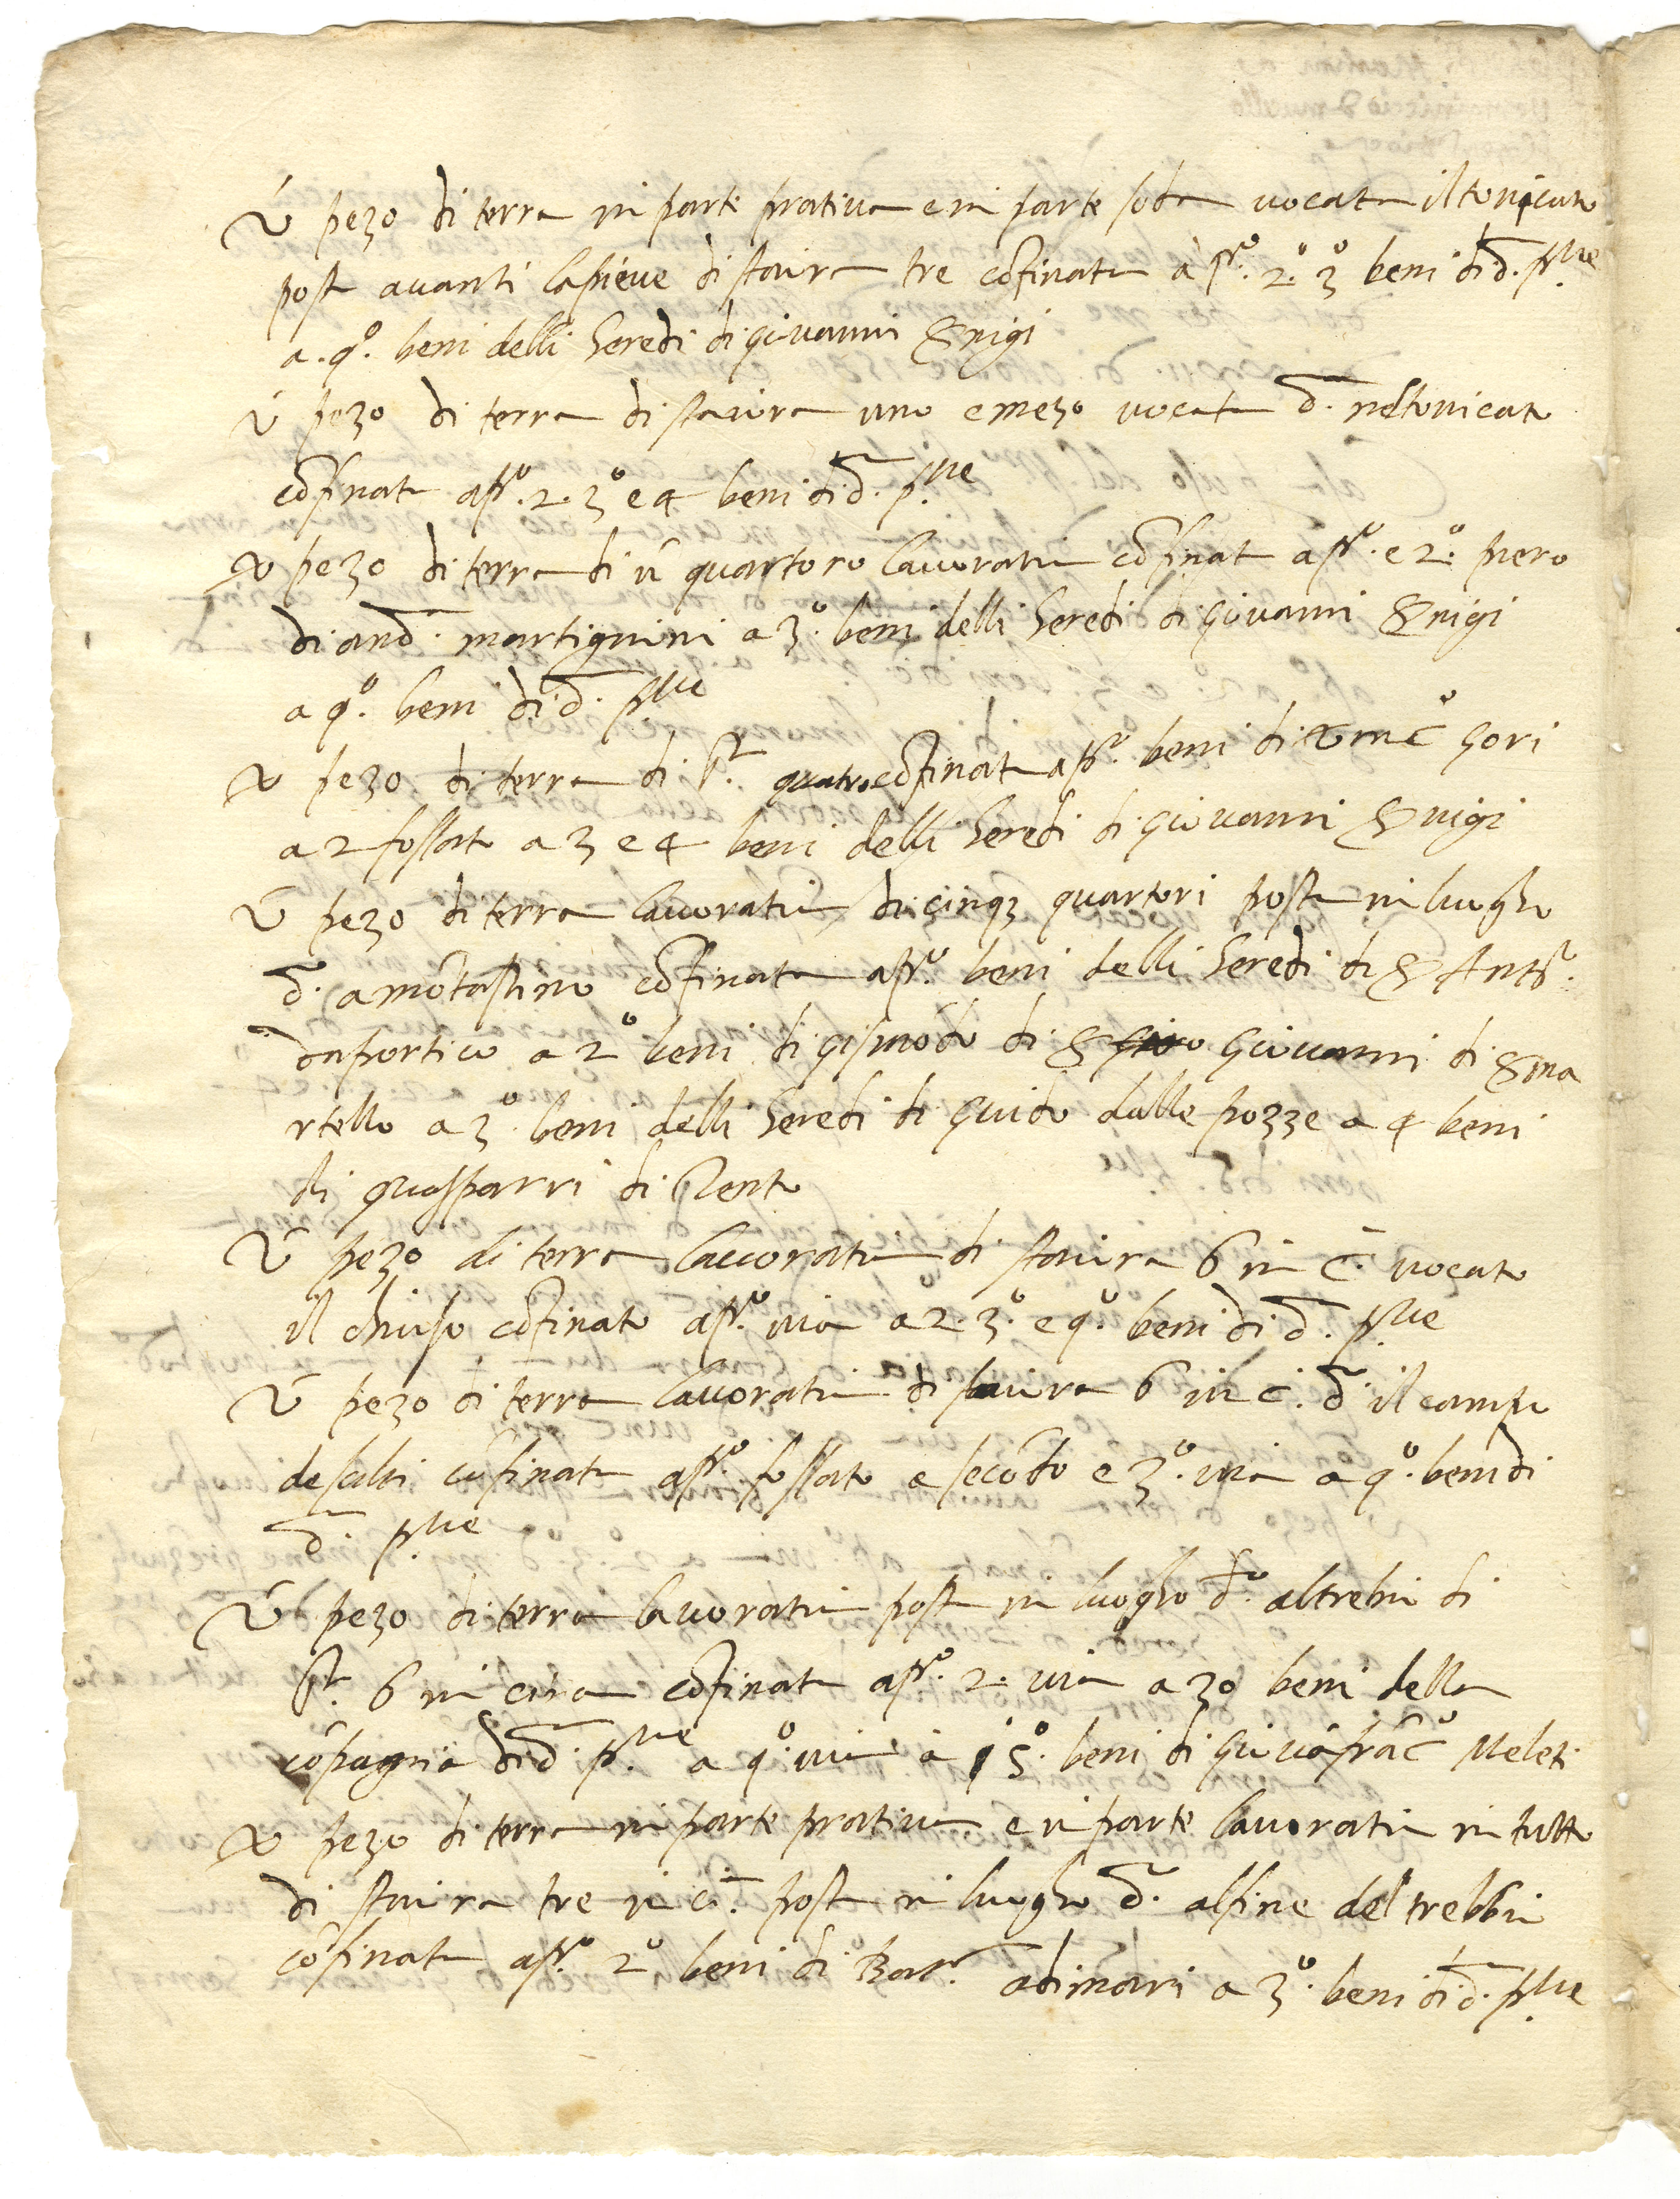 Ū pezo di terra in parte pratiua e in parte soda uocata il tonicato
posta auanti la pieue di staiora tre cōfinata a pr.º 2.º 3.º beni di d. p.ue
a. q.º beni delli heredi di giouanni
Ū pezo di terra di staiora uno e mezo uocata d. nel tonicato
cōfinata a pr.º 2. 3.º e 4 beni di d. p.ue
Ū pezo di terra di ū quartoro lauoratia cōfinata a pr.º e 2.º piero
di and. martignini a 3.º beni delli heredi di giouanni
a q.º beni di d. p.ue
Ū pezo di terra di st. quatro cōfinata a pr.º beni di gori
a 2 fossato a 3 e 4 beni delli heredi di giouanni
Ū pezo di terra lauoratia di cinq3 quartori posta in luogho
d. a mōtastino cōfinata a pr.º beni delli heredi di S Antº.
da portico a 2º beni di gismōdo di S giouanni di S ma
rtello a 3.º beni delli heredi di guido dalle pozze a 4 beni
di guasparri di
Ū pezo di terra lauoratia di staiora 6 in c. uocato
il chiuso cōfinato a pr.º uia a 2. 3.º e q.º beni di d. p.ue
Ū pezo di terra lauoratia di staiora 6 in c. d. il campo
de salci cōfinata a pr.º fossato e secōdo e 3.º uia a q.º beni di
d. p.ue
Ū pezo di terra lauoratia posta in luogho d.º al trebio di
st. 6 in circa cōfinata a pr.º 2. uia a 3o beni della
cōpagnia di d. p.ue a q.º uia a 5.º beni di giouāfrāc.º Meleti
Ū pezo di terra in parte pratiua e in parte lauoratia in tutto
di staiora tre in c.ª posta in luogho d. al fine del trebbio
cōfinata a pr.º 2º beni di Bart.º adimari a 3.º beni di d. p.ue